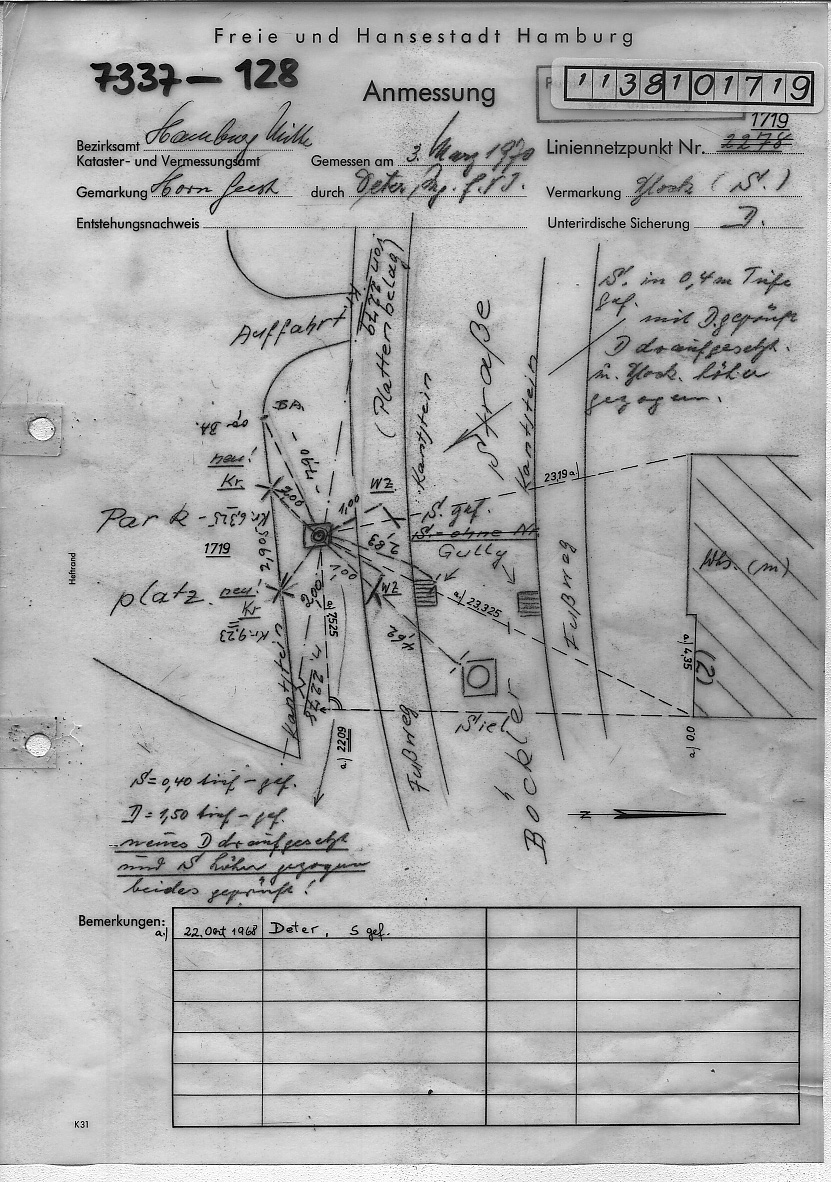 Freie und Hansestadt Hamburg
7337-128
Anmessung
1138101719
Bezirksamt Hamburg Mitte
Kataster- und Vermessungsamt
Gemessen am 3. März 1970
1719
Liniennetzpunkt Nr. 2278
Gemarkung Horn Geest
durch Deter,
Vermarkung Block (S.)
Entstehungsnachweis
Unterirdische Sicherung D.
S. in 0,4 m Tiefe
gef.
mit D. geprüft
D draufgesetzt.
u. Block. höher
gezogen.
Auffahrt
(Plattenbelag)
Kantstein
Straße
Kantstein
BA.
neu!
Kr.
2,00
4,90
1,00
WZ
23,19 a)
S. gef.
S. = ohne Nr.
Gully
Park-
1719
2,605
2,83
1,00
WZ
platz.
neu!
Kr
2,00
a) 7525
a) 23,325
Fußweg
Whs. (m)
a) 4,35
(2)
Kantstein
n. 2278
22,09 a)
Fußweg
Siel
Böckler
0,0 a)
N
Heftrand
S = 0,40 tief - gef.
D = 1,50 tief - gef.
neues D draufgesetzt
und S höher gezogen
beides geprüft!
Bemerkungen:
a) 22. Okt 1968 Deter, S gef.
K31